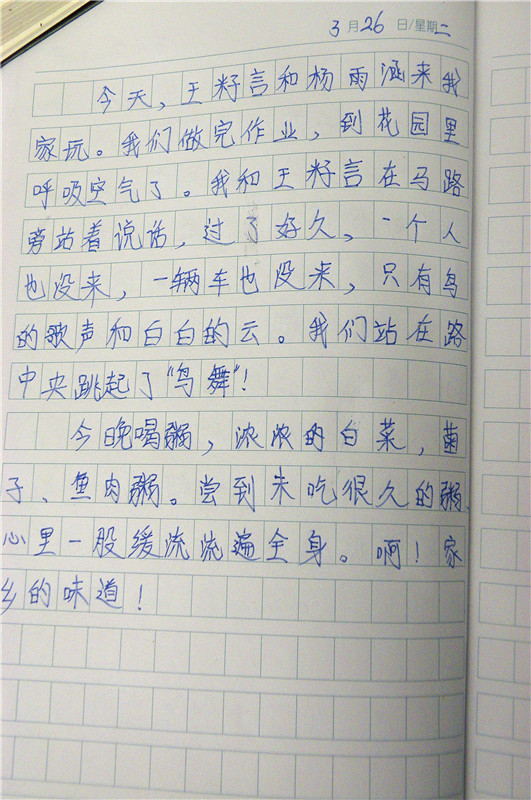 3月26日/星期二
今天，王籽言和杨雨涵来我
家玩。我们做完作业，到花园里
呼吸空气了。我和王籽言在马路
旁站着说话，过了好久，一个人
也没来，一辆车也没来，只有鸟
的歌声和白白的云。我们站在路
中央跳起了“鸟舞”！
今晚喝粥，浓浓的白菜，菌
子、鱼肉粥。尝到未吃很久的粥，
心里一股缓流流遍全身。啊！家
乡的味道！